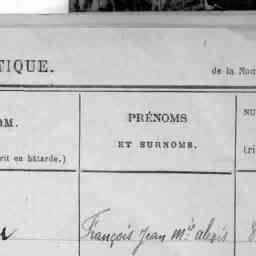 TIQUE.
de la Nom
OM.
PRÉNOMS
NU
ET SURNOMS.
rit en bâtarde.)
(ri
François Jean Mie alexis
8